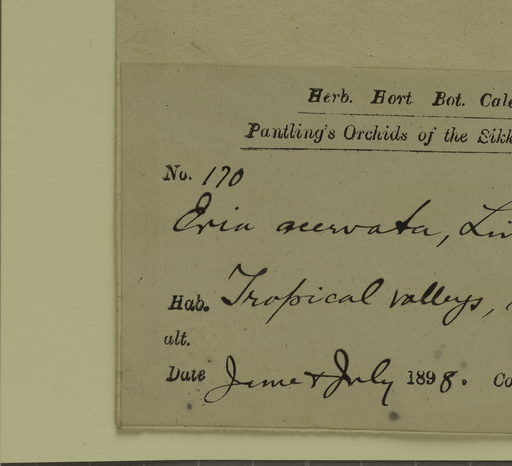 Herb. Hort. Bot. Calc
Pantling's Orchids of the Sikk
No. 170
Eria acervata, Lin
Hab. Tropical valleys,
alt.
Date June & July 1898. Co